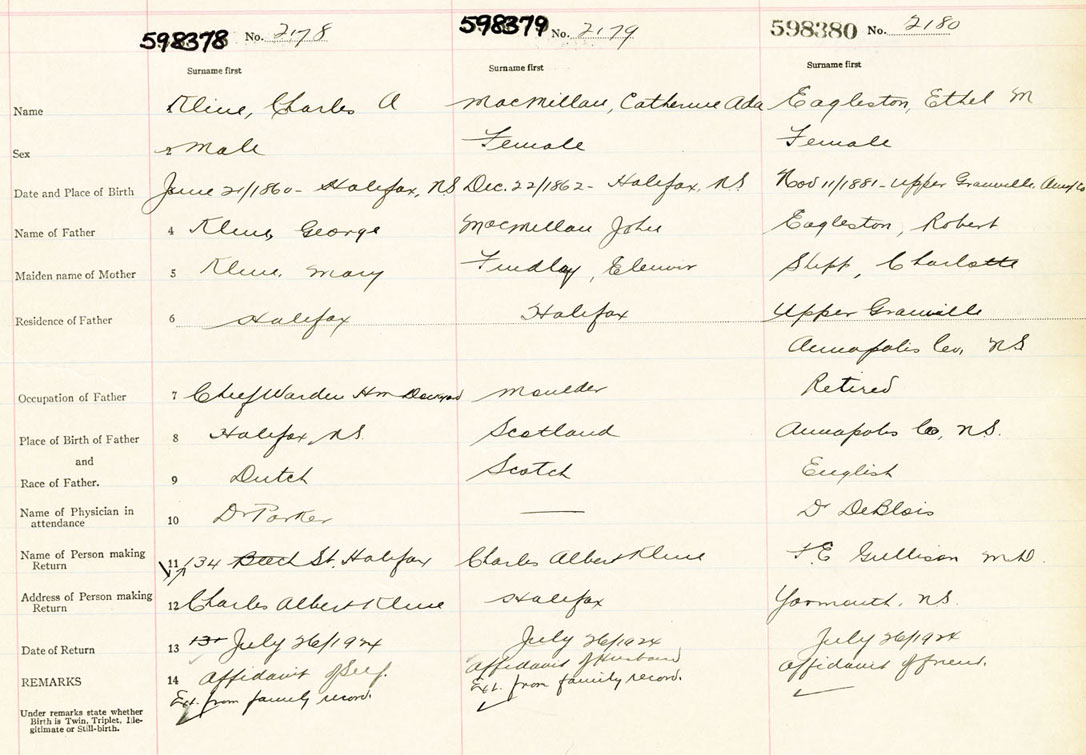 598378 No. 2178 598379 No. 2179 598380 No. 2180
Surname first Surname first Surname first
Name Kline, Charles A MacMillan, Catherine Ada Eagleston, Ethel M
Sex 2 Male Female Female
Date and Place of Birth June 21/1860 - Halifax, NS Dec. 22/1862 - Halifax, NS Nov 11/1881 - Upper Granville, Co
Name of Father 4 Kline, George MacMillan John Eagleston, Robert
Maiden name of Mother 5 Kline, Mary Findlay, Elenoir Shipp, Charlotte
Residence of Father 6 Halifax Halifax Upper Granville
Annapolis Co, NS
Occupation of Father 7 Chief Warden Hm Dockyard Moulder Retired
Place of Birth of Father 8 Halifax, NS. Scotland Annapolis Co, NS.
and
Race of Father. 9 Dutch Scotch English
Name of Physician in
attendance 10 Dr Parker — Dr DeBlois
Name of Person making
Return 11 134 St. Halifax Charles Albert Kline Gullison MD.
Address of Person making
Return 12 Charles Albert Kline Halifax Yarmouth, NS.
Date of Return 13 July 26/1924 July 26/1924 July 26/1924
REMARKS 14 Affidavit of Self. Affidavit of Husband Affidavit of friend.
Ext. from family record. Ext. from family record.
Under remarks state whether
Birth is Twin, Triplet, Ille-
gitimate or Still-birth.